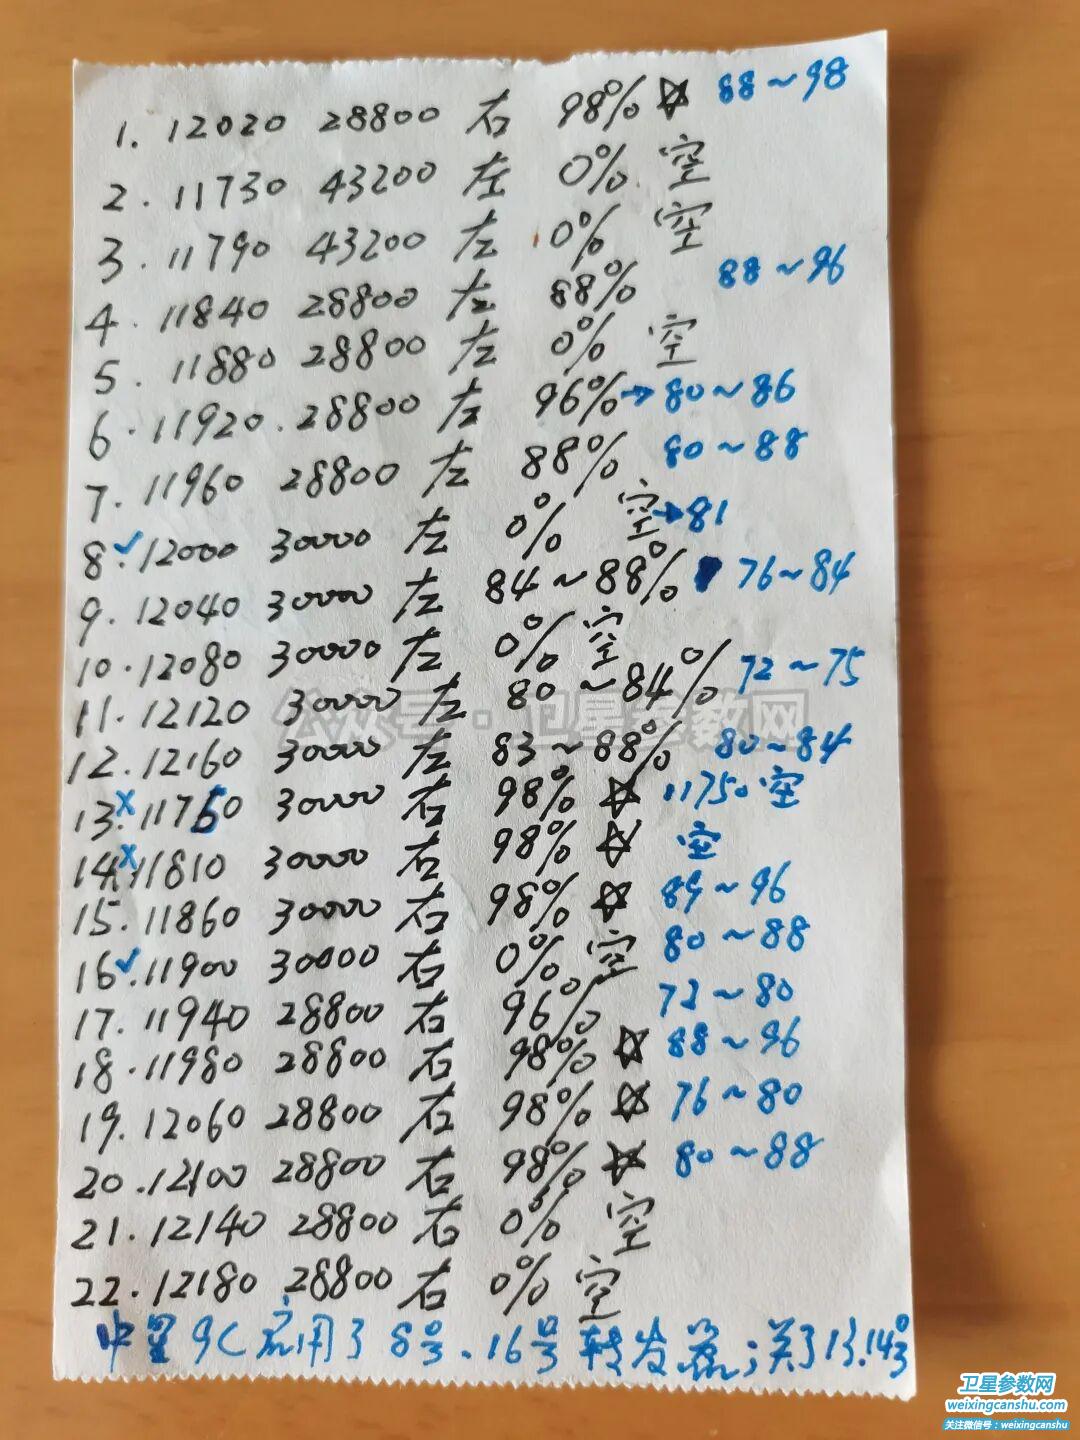 1. 12020 28800 右 98% ☆ 88~98
2. 11730 43200 左 0% 空
3. 11790 43200 左 0% 空
4. 11840 28800 左 88% 88~96
5. 11880 28800 左 0% 空
6. 11920. 28800 左 96% → 80~86
7. 11960 28800 左 88% 80~88
8.✓ 12000 30000 左 0% 空 → 81
9. 12040 30000 左 84~88% 76~84
10. 12080 30000 左 0% 空
11. 12120 30000 左 80~84% 72~75
公众号·卫星参数网
12. 12160 30000 左 83~88% 80~84
13.× 11750 30000 右 98% ☆ 11750空
14.× 11810 30000 右 98% ☆ 空
15. 11860 30000 右 98% ☆ 89~96
16.✓ 11900 30000 右 0% 空 80~88
17. 11940 28800 右 96% 72~80
18. 11980 28800 右 98% ☆ 88~96
19. 12060 28800 右 98% ☆ 76~80
20. 12100 28800 右 98% ☆ 80~88
21. 12140 28800 右 0% 空
22. 12180 28800 右 0% 空
中星9C启用了8号.16号转发器;关了13.14号
卫星参数网
weixingcanshu.com
关注微信号:weixingcanshu